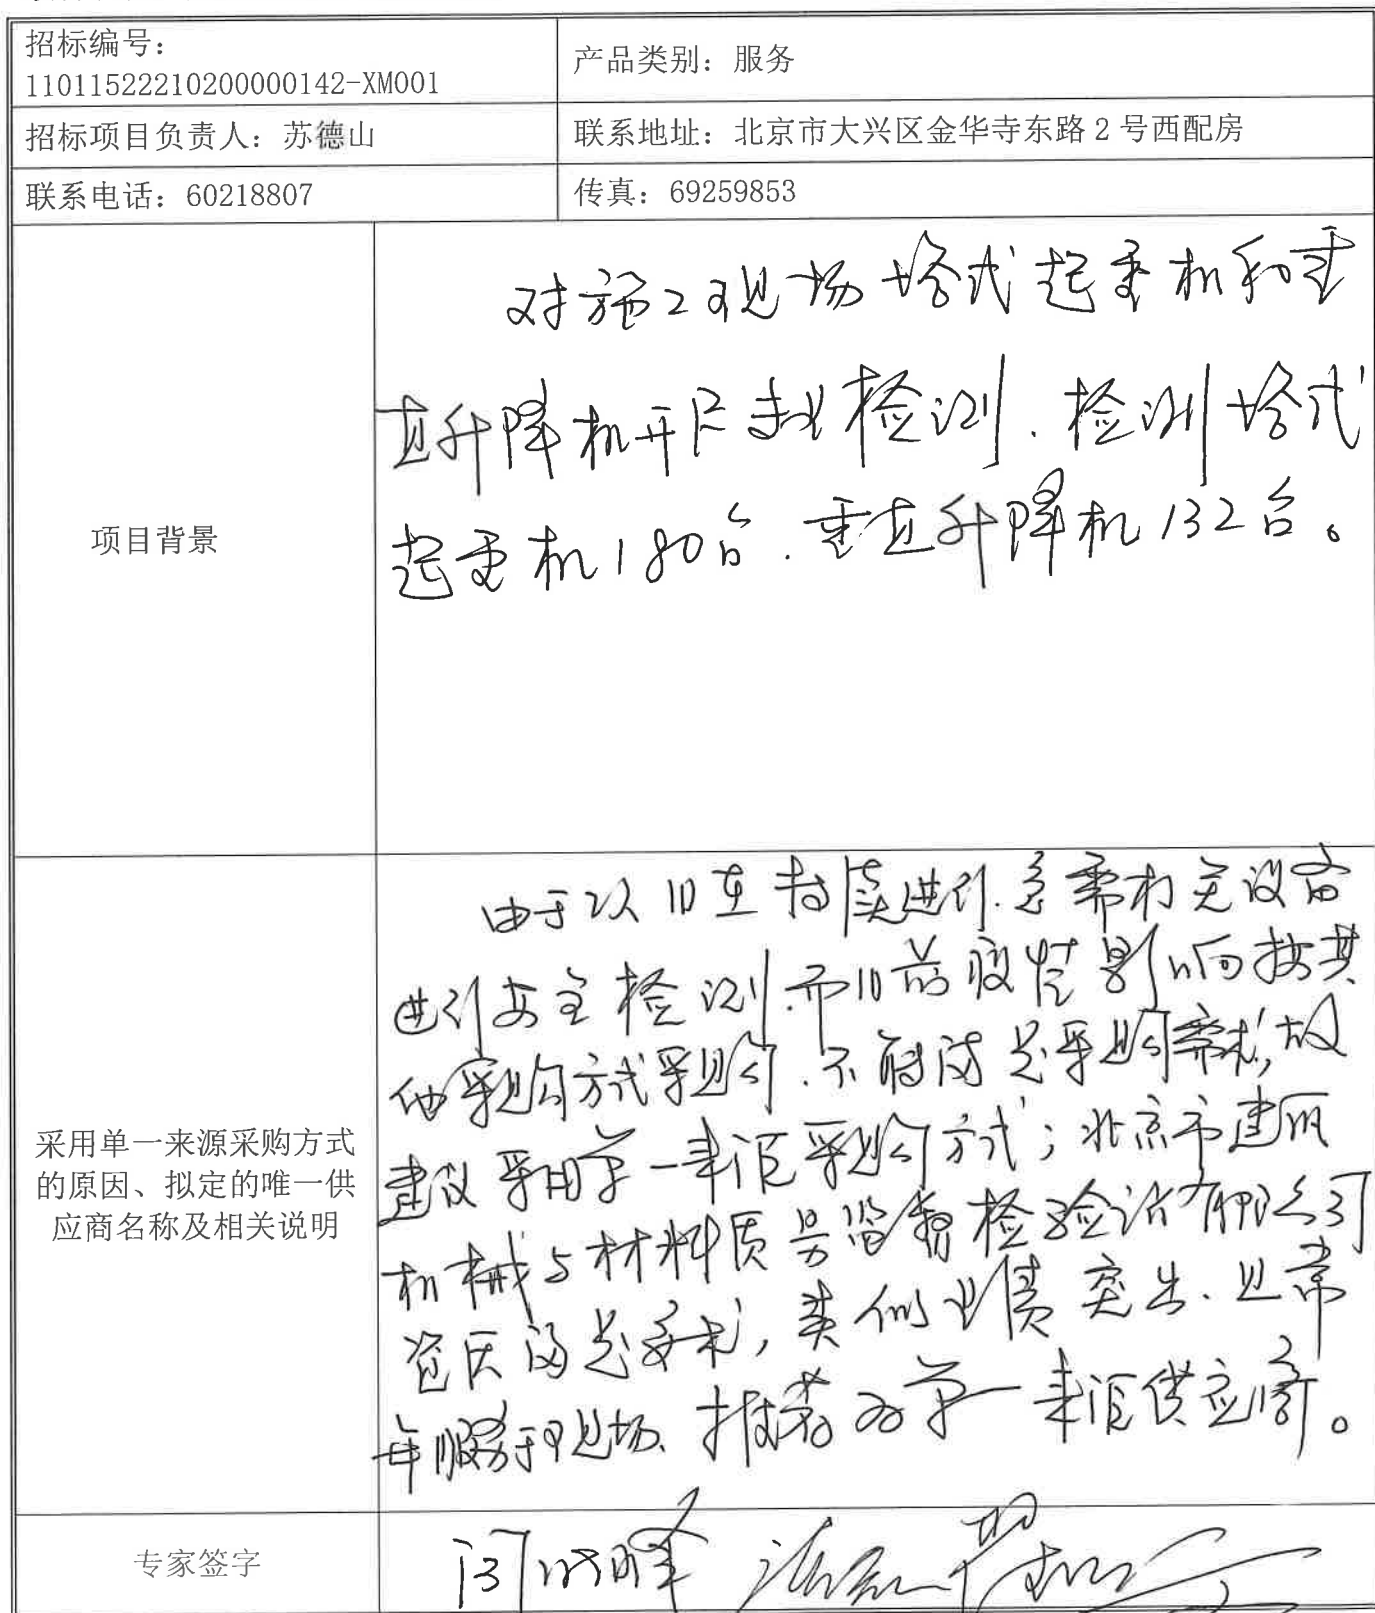 招标编号:
11011522210200000142-XM001
产品类别:服务
招标项目负责人:苏德山
联系地址:北京市大兴区金华寺东路2号西配房
联系电话:60218807
传真:69259853
项目背景
对施工现场塔式起重机和垂
直升降机开展检测、检测塔式
起重机180台、垂直升降机132台。
采用单一来源采购方式
的原因、拟定的唯一供
应商名称及相关说明
由于项目在持续进行、急需对设备
进行安全检测、而目前疫情影响按其
他采购方式采购、不能满足采购需求,故
建议采用单一来源采购方式;北京市建筑
机械与材料质量监督检验站有限公司
资质满足要求,类似业绩突出、且常
年服务于现场、推荐为单一来源供应商。
专家签字